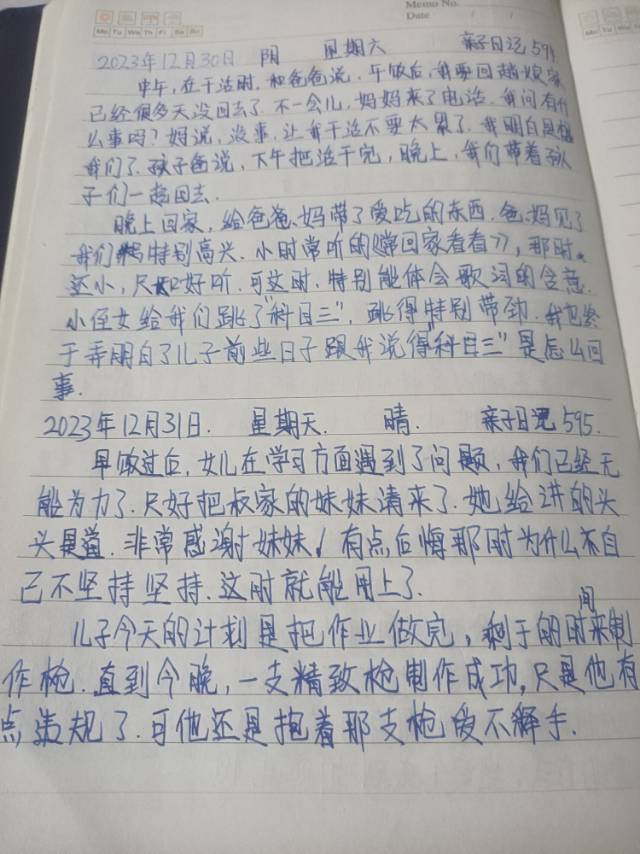 Memo No.
Date
Mo Tu We Th Fr Sa Su
2023年12月30日 阴 星期六 亲子日记594
中午,在干活时,和爸爸说,午饭后,我要回趟娘家
已经很多天没回去了.不一会儿,妈妈来了电话,我问有什
么事吗?妈说,没事,让我干活不要太累了.我明白是想
我们了.孩子爸说,下午把活干完,晚上,我们带着孩
子们一起回去.
晚上回家,给爸爸、妈带了爱吃的东西.爸、妈见了
我们特别高兴.小时常听的《常回家看看》,那时
还小,只知好听.可这时,特别能体会歌词的含意.
小侄女给我们跳了"科目三",跳得特别带劲.我也终
于弄明白了儿子前些日子跟我说得"科目三"是怎么回
事.
2023年12月31日. 星期天. 晴. 亲子日记595.
早饭过后,女儿在学习方面遇到了问题,我们已经无
能为力了.只好把叔家的妹妹请来了.她给讲的头
头是道.非常感谢妹妹!有点后悔那时为什么不自
己不坚持坚持.这时就能用上了.
儿子今天的计划是把作业做完,剩于的时间来制
作枪.直到今晚,一支精致枪制作成功,只是他有
点违规了.可他还是抱着那支枪爱不释手.